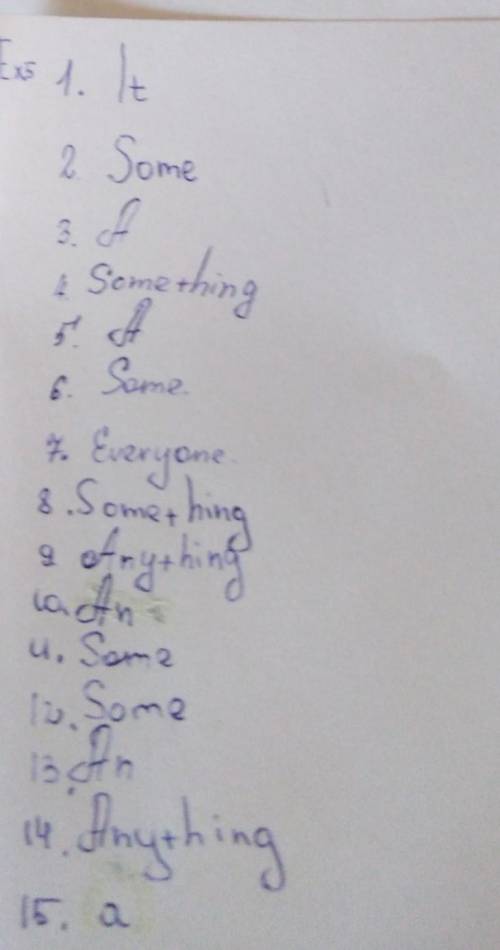 Ex5 1. It
2. Some
3. A
4. Something
5. A
6. Some.
7. Everyone.
8. Something
9 Anything
10. An
11. Some
12. Some
13. An
14. Anything
15. a